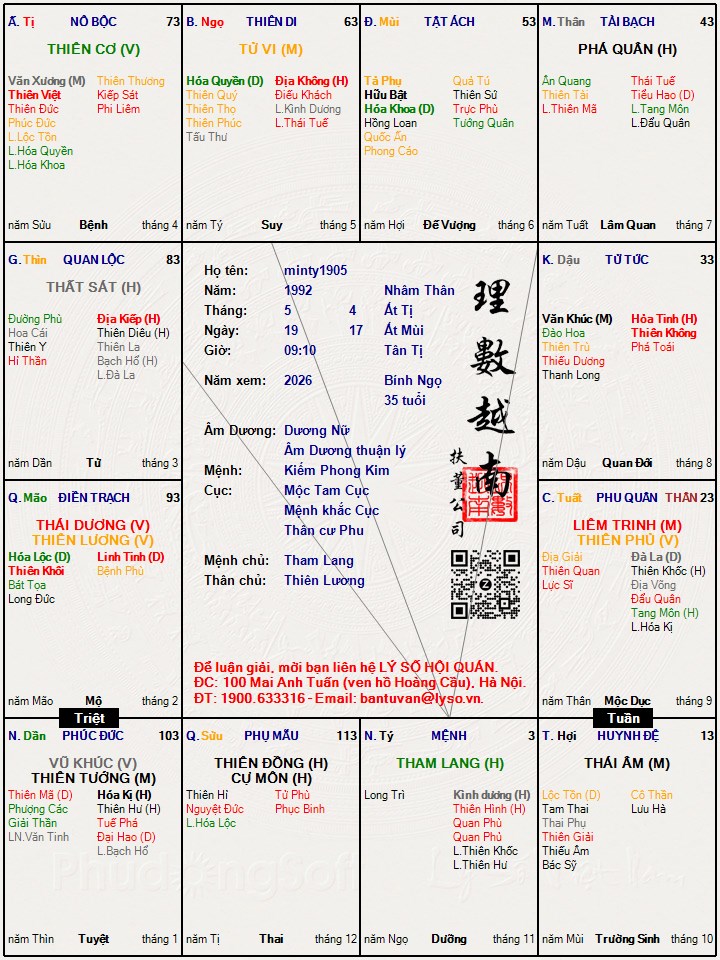 Ấ. Tị NÔ BỘC 73
THIÊN CƠ (V)
Văn Xương (M) Thiên Thương
Thiên Việt Kiếp Sát
Thiên Đức Phi Liêm
Phúc Đức
L.Lộc Tồn
L.Hóa Quyền
L.Hóa Khoa
năm Sửu Bệnh tháng 4
B. Ngọ THIÊN DI 63
TỬ VI (M)
Hóa Quyền (D) Địa Không (H)
Thiên Quý Điếu Khách
Thiên Thọ L.Kình Dương
Thiên Phúc L.Thái Tuế
Tấu Thư
năm Tý Suy tháng 5
Đ. Mùi TẬT ÁCH 53
Tả Phụ Quả Tú
Hữu Bật Thiên Sứ
Hóa Khoa (D) Trực Phù
Hồng Loan Tướng Quân
Quốc Ấn
Phong Cáo
năm Hợi Đế Vượng tháng 6
M. Thân TÀI BẠCH 43
PHÁ QUÂN (H)
Ân Quang Thái Tuế
Thiên Tài Tiểu Hao (D)
L.Thiên Mã L.Tang Môn
L.Đẩu Quân
năm Tuất Lâm Quan tháng 7
G. Thìn QUAN LỘC 83
THẤT SÁT (H)
Đường Phù Địa Kiếp (H)
Hoa Cái Thiên Diêu (H)
Thiên Y Thiên La
Hỉ Thần Bạch Hổ (H)
L.Đà La
năm Dần Tử tháng 3
Họ tên: minty1905
Năm: 1992 Nhâm Thân
Tháng: 5 4 Ất Tị
Ngày: 19 17 Ất Mùi
Giờ: 09:10 Tân Tị
Năm xem: 2026 Bính Ngọ
35 tuổi
Âm Dương: Dương Nữ
Âm Dương thuận lý
Mệnh: Kiếm Phong Kim
Cục: Mộc Tam Cục
Mệnh khắc Cục
Thân cư Phu
Mệnh chủ: Tham Lang
Thân chủ: Thiên Lương
理數越南
扶董公司
Để luận giải, mời bạn liên hệ LÝ SỐ HỘI QUÁN.
ĐC: 100 Mai Anh Tuấn (ven hồ Hoàng Cầu), Hà Nội.
ĐT: 1900.633316 - Email: bantuvan@lyso.vn.
K. Dậu TỬ TỨC 33
Văn Khúc (M) Hỏa Tinh (H)
Đào Hoa Thiên Không
Thiên Trù Phá Toái
Thiếu Dương
Thanh Long
năm Dậu Quan Đới tháng 8
Q. Mão ĐIỀN TRẠCH 93
THÁI DƯƠNG (V)
THIÊN LƯƠNG (V)
Hóa Lộc (D) Linh Tinh (D)
Thiên Khôi Bệnh Phù
Bát Tọa
Long Đức
năm Mão Mộ tháng 2
C. Tuất PHU QUÂN THÂN 23
LIÊM TRINH (M)
THIÊN PHỦ (V)
Địa Giải Đà La (D)
Thiên Quan Thiên Khốc (H)
Lực Sĩ Địa Võng
Đẩu Quân
Tang Môn (H)
L.Hóa Kị
năm Thân Mộc Dục tháng 9
Triệt
Tuần
N. Dần PHÚC ĐỨC 103
VŨ KHÚC (V)
THIÊN TƯỚNG (M)
Thiên Mã (D) Hóa Kị (H)
Phượng Các Thiên Hư (H)
Giải Thần Tuế Phá
LN.Văn Tinh Đại Hao (D)
L.Bạch Hổ
năm Thìn Tuyệt tháng 1
Q. Sửu PHỤ MẪU 113
THIÊN ĐỒNG (H)
CỰ MÔN (H)
Thiên Hỉ Tử Phù
Nguyệt Đức Phục Binh
L.Hóa Lộc
năm Tị Thai tháng 12
N. Tý MỆNH 3
THAM LANG (H)
Long Trì Kình dương (H)
Thiên Hình (H)
Quan Phù
Quan Phủ
L.Thiên Khốc
L.Thiên Hư
năm Ngọ Dưỡng tháng 11
T. Hợi HUYNH ĐỆ 13
THÁI ÂM (M)
Lộc Tồn (D) Cô Thần
Tam Thai Lưu Hà
Thai Phụ
Thiên Giải
Thiếu Âm
Bác Sỹ
năm Mùi Trường Sinh tháng 10